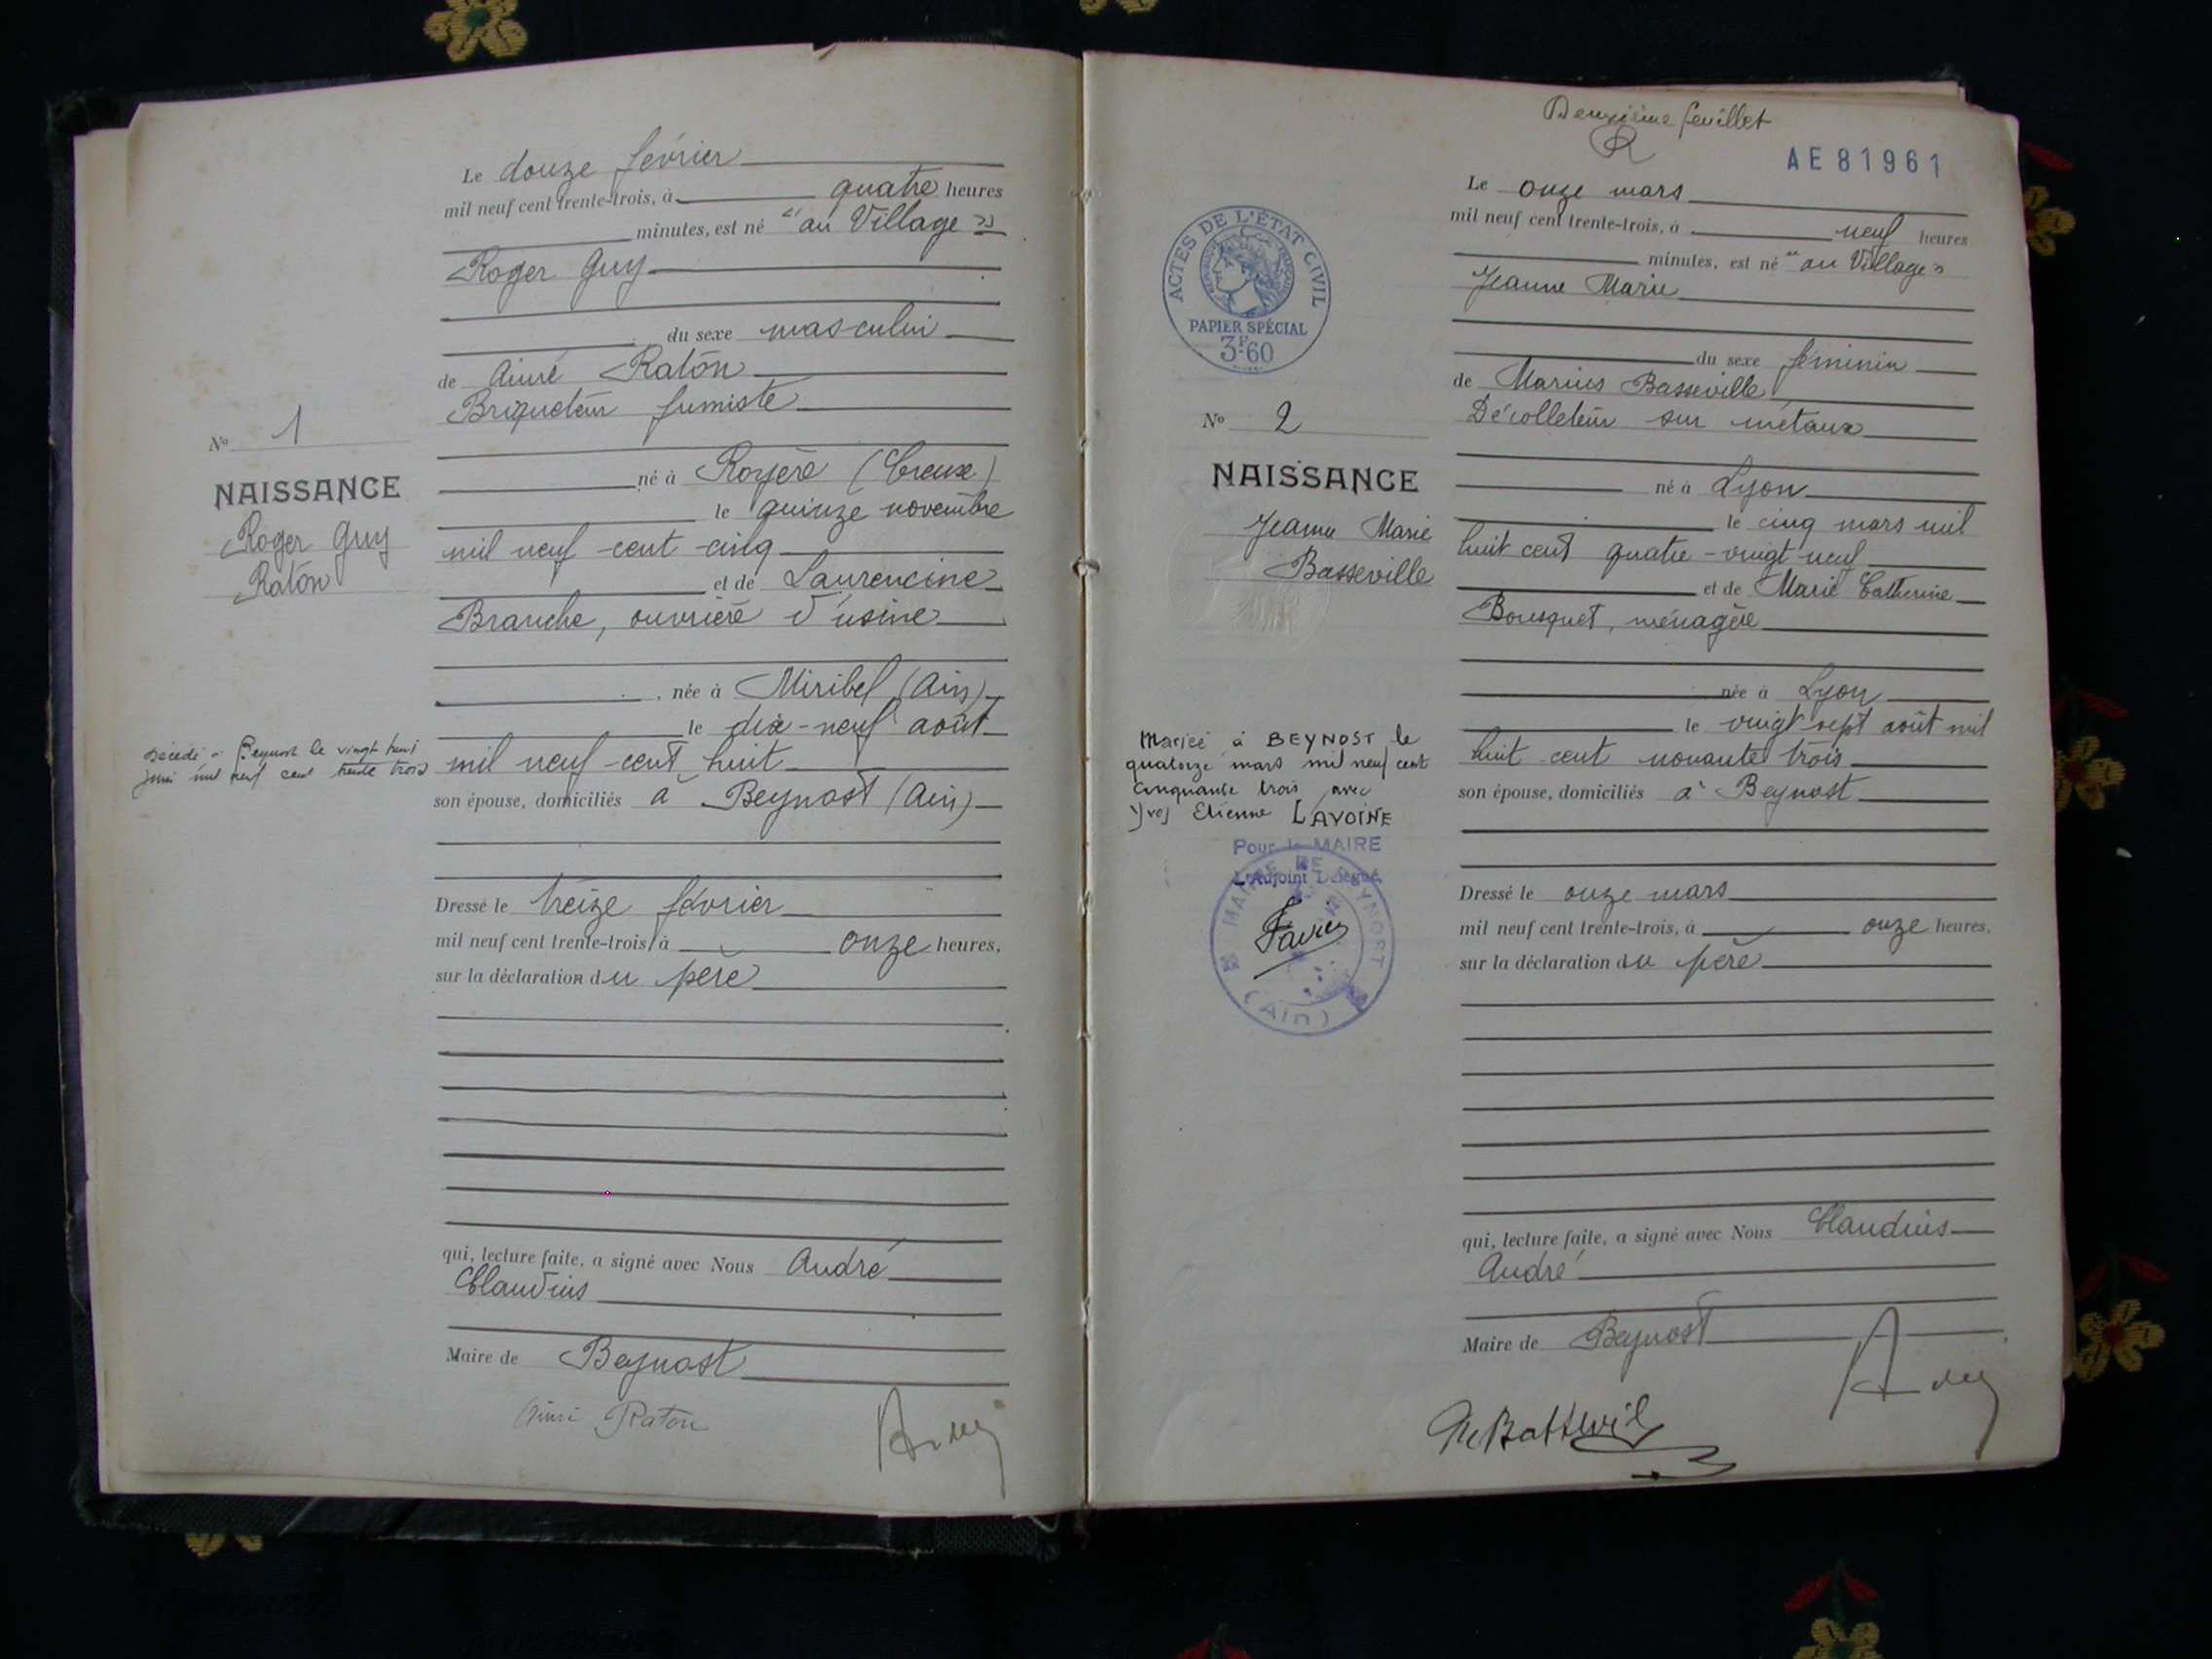 Le douze février
mil neuf cent trente-trois, à quatre heures
minutes, est né "au Village"
Roger Guy
du sexe masculin
de Aimé Raton
Briqueteur fumiste
né à Royère (Creuse)
le quinze novembre
mil neuf cent cinq
et de Laurencine
Branche, ouvrière d'usine
née à Miribel (Ain)
le dix-neuf août
mil neuf cent huit
son épouse, domiciliés à Beynost (Ain)
Dressé le treize février
mil neuf cent trente-trois, à onze heures,
sur la déclaration du père
qui, lecture faite, a signé avec Nous André
Claudius
Maire de Beynost
Aimé Raton
No 1
NAISSANCE
Roger Guy
Raton
Décédé à Beynost le vingt huit
mil neuf cent trente trois
Deuxième feuillet
AE 81961
ACTES DE L'ÉTAT CIVIL
PAPIER SPÉCIAL
3F.60
No 2
NAISSANCE
Jeanne Marie
Basseville
Mariée à BEYNOST le
quatorze mars mil neuf cent
cinquante trois avec
Yves Etienne LAVOINE
Pour le MAIRE
L'Adjoint Délégué
MAIRIE DE BEYNOST
(Ain)
Le onze mars
mil neuf cent trente-trois, à neuf heures
minutes, est né "au Village"
Jeanne Marie
du sexe féminin
de Marius Basseville
Décolleteur sur métaux
né à Lyon
le cinq mars mil
huit cent quatre-vingt-neuf
et de Marie Catherine
Bousquet, ménagère
née à Lyon
le vingt-sept août mil
huit cent nonante trois
son épouse, domiciliés à Beynost
Dressé le onze mars
mil neuf cent trente-trois, à onze heures,
sur la déclaration du père
qui, lecture faite, a signé avec Nous Claudius
André
Maire de Beynost